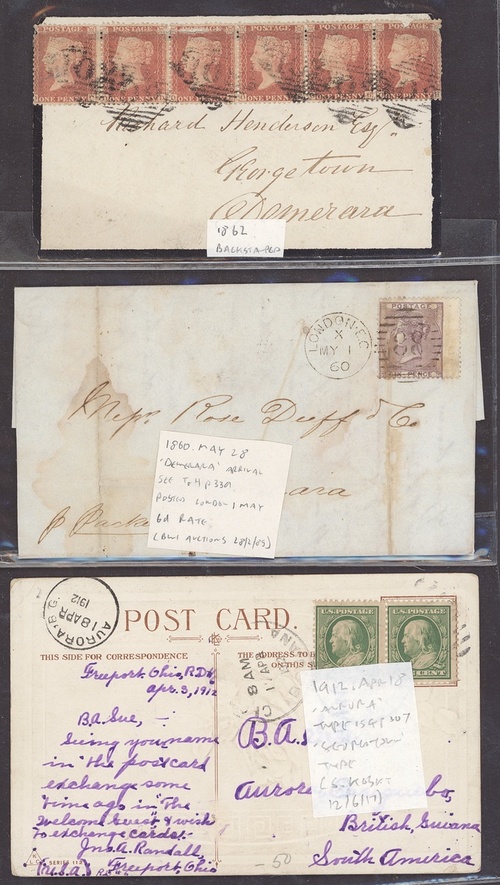 POSTAGE POSTAGE POSTAGE POSTAGE POSTAGE POSTAGE
ONE PENNY ONE PENNY ONE PENNY ONE PENNY ONE PENNY ONE PENNY
Richard Henderson Esqr
Georgetown
Demerara
1862
BACKSTAMPED
LONDON.E.C
X
MY 1
60
POSTAGE
88
PENCE
Messrs Rose Duff & Co
1860. MAY 28
'DEMERARA' ARRIVAL
SEE T&H p339
POSTED LONDON 1 MAY
6d RATE
(BWI AUCTIONS 28/2/09)
ara
p Packet
AURORA, B.G.
18 APR
1912
POST CARD.
U.S.POSTAGE U.S.POSTAGE
CENT
THIS SIDE FOR CORRESPONDENCE
THE ADDRESS TO BE
ON THIS
8 AM
17 APR
Freeport, Ohio, R.D.
apr. 3, 1912
B.A. Sue, -
Seeing your name
in the postcard
exchange some
time ago in the
Welcome Guest & wish
to exchange cards.
Jno. A. Randall,
Freeport, Ohio
(U.S.A.)
SERIES 118
B.A.
Aurora
British Guiana
South America
1912. APR 18
'AURORA'
'GEORGETOWN'
TYPE
12/6/17)
-50